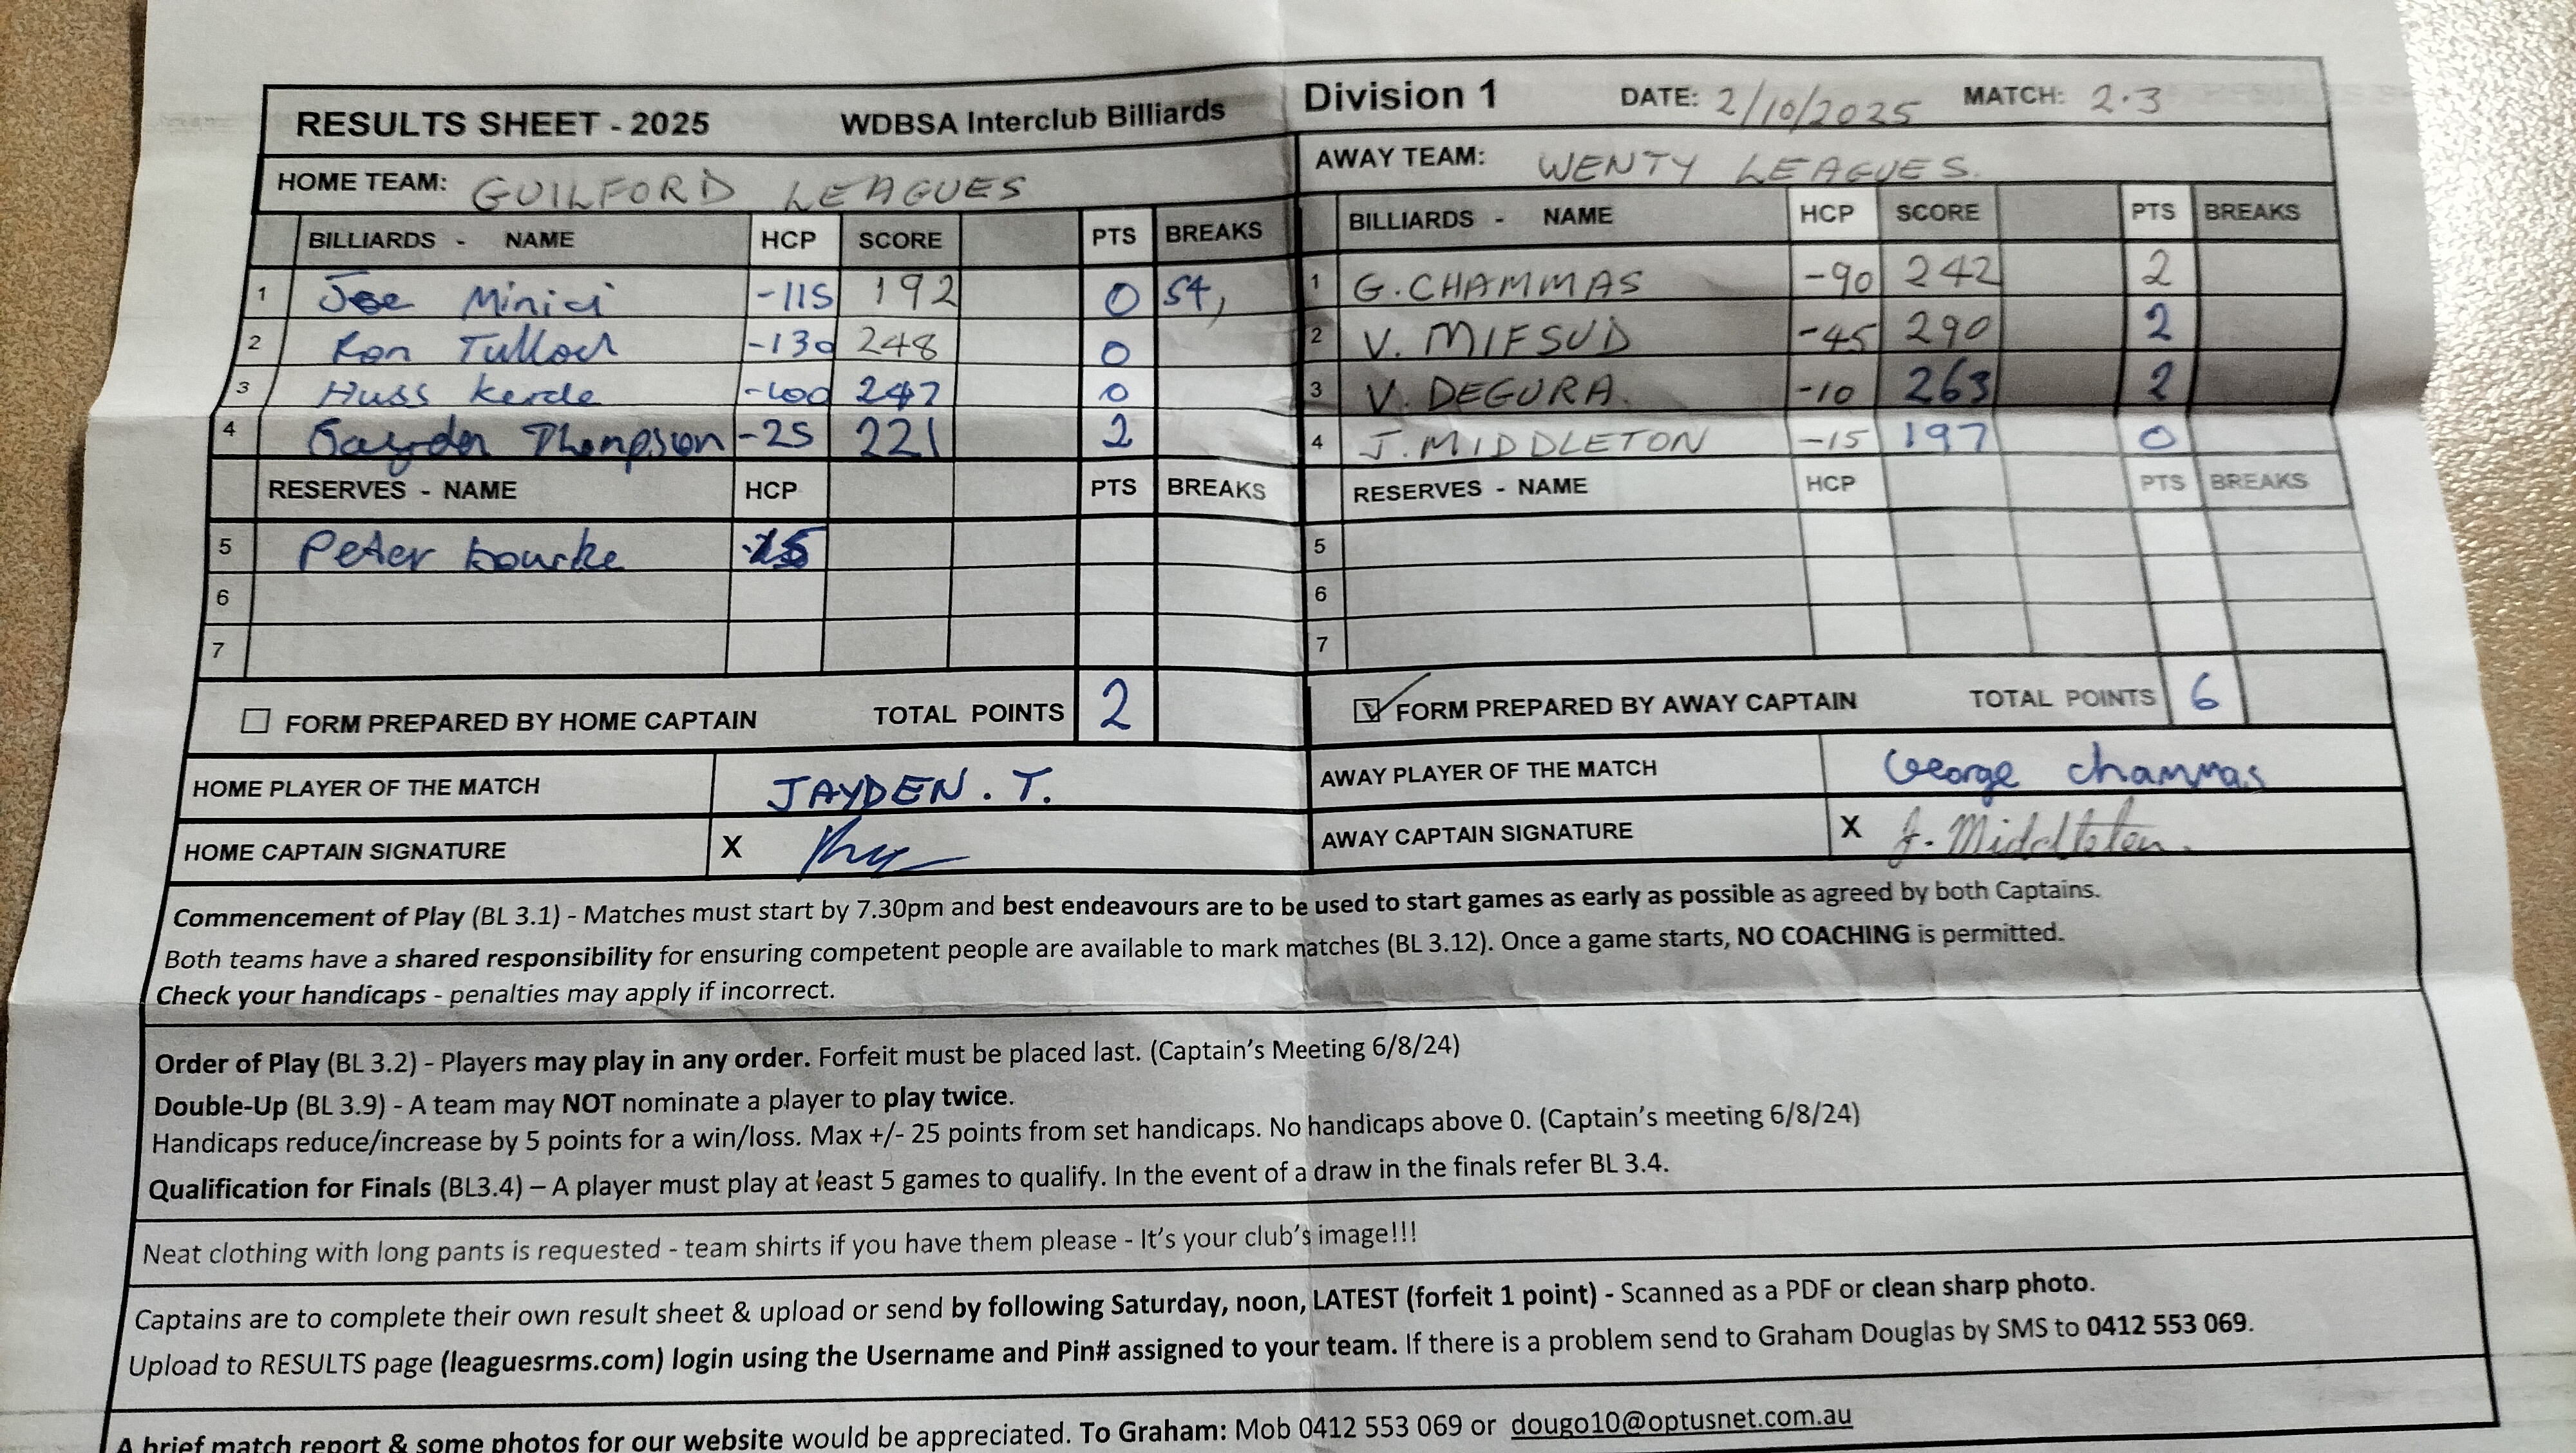 RESULTS SHEET - 2025 WDBSA Interclub Billiards Division 1 DATE: 2/10/2025 MATCH: 2.3
HOME TEAM: GUILFORD LEAGUES AWAY TEAM: WENTY LEAGUES.
BILLIARDS - NAME HCP SCORE PTS BREAKS BILLIARDS - NAME HCP SCORE PTS BREAKS
1 Joe Minici -115 192 0 54, 1 G. CHAMMAS -90 242 2
2 Ron Tulloch -130 248 0 2 V. MIFSUD -45 290 2
3 Huss Kerde -100 247 0 3 V. DEGURA. -10 263 2
4 Jayden Thompson -25 221 2 4 J. MIDDLETON -15 197 0
RESERVES - NAME HCP PTS BREAKS RESERVES - NAME HCP PTS BREAKS
5 Peter bourke 5
6 6
7 7
FORM PREPARED BY HOME CAPTAIN TOTAL POINTS 2 FORM PREPARED BY AWAY CAPTAIN TOTAL POINTS 6
HOME PLAYER OF THE MATCH JAYDEN. T. AWAY PLAYER OF THE MATCH George chammas
HOME CAPTAIN SIGNATURE X AWAY CAPTAIN SIGNATURE X J. Middleton.
Commencement of Play (BL 3.1) - Matches must start by 7.30pm and best endeavours are to be used to start games as early as possible as agreed by both Captains.
Both teams have a shared responsibility for ensuring competent people are available to mark matches (BL 3.12). Once a game starts, NO COACHING is permitted.
Check your handicaps - penalties may apply if incorrect.
Order of Play (BL 3.2) - Players may play in any order. Forfeit must be placed last. (Captain's Meeting 6/8/24)
Double-Up (BL 3.9) - A team may NOT nominate a player to play twice.
Handicaps reduce/increase by 5 points for a win/loss. Max +/- 25 points from set handicaps. No handicaps above 0. (Captain's meeting 6/8/24)
Qualification for Finals (BL3.4) – A player must play at least 5 games to qualify. In the event of a draw in the finals refer BL 3.4.
Neat clothing with long pants is requested - team shirts if you have them please - It's your club's image!!!
Captains are to complete their own result sheet & upload or send by following Saturday, noon, LATEST (forfeit 1 point) - Scanned as a PDF or clean sharp photo.
Upload to RESULTS page (leaguesrms.com) login using the Username and Pin# assigned to your team. If there is a problem send to Graham Douglas by SMS to 0412 553 069.
A brief match report & some photos for our website would be appreciated. To Graham: Mob 0412 553 069 or dougo10@optusnet.com.au